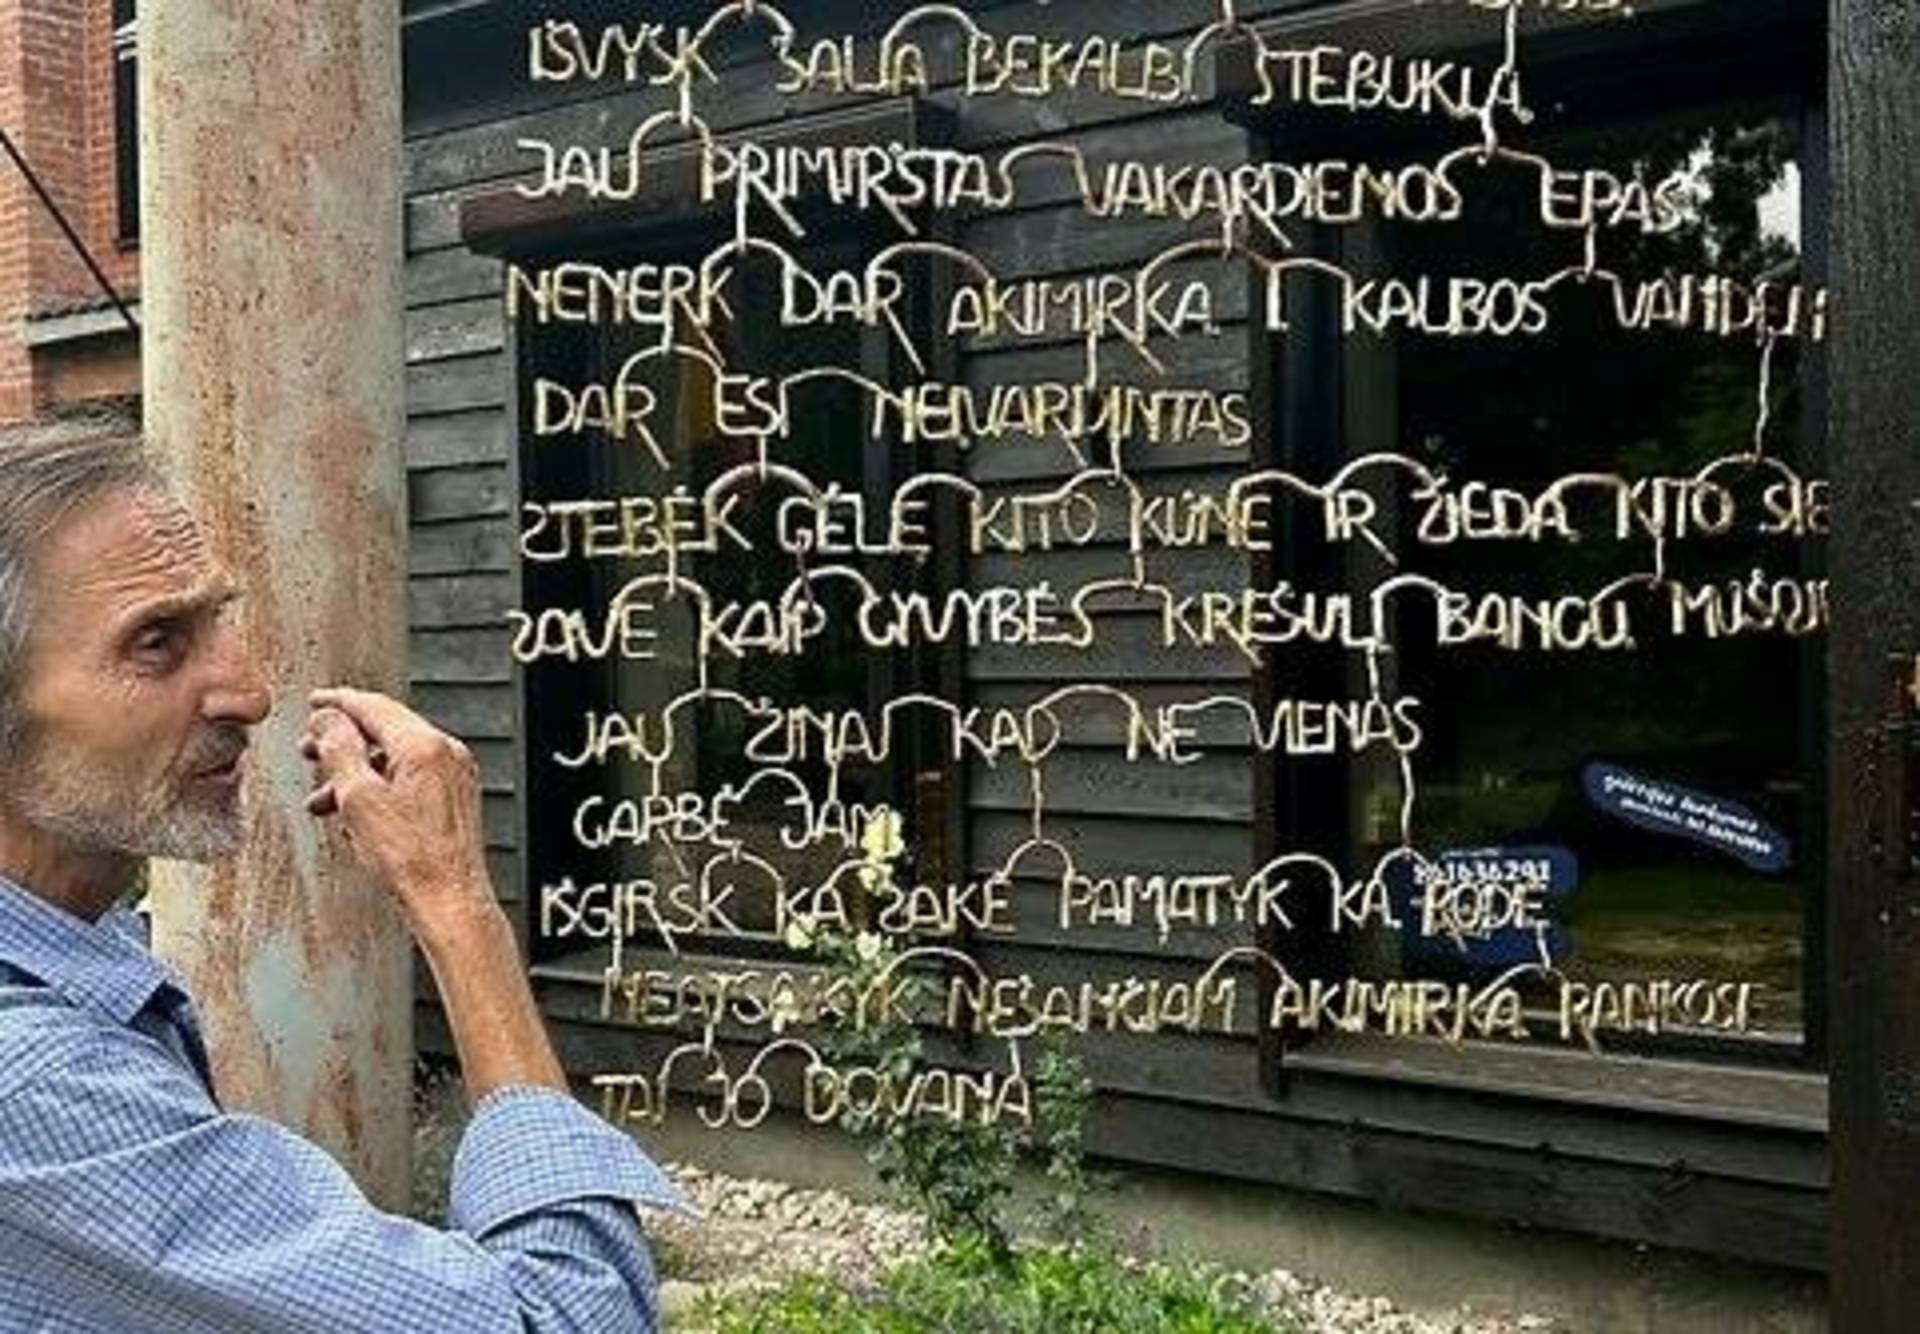 IŠVYSK ŠALIA BEKALBĮ STEBUKLĄ
JAU PRIMIRŠTAS VAKARDIENOS EPAS
NENERK DAR AKIMIRKĄ Į KALBOS VANDENĮ
DAR ESI NEIVARDINTAS
STEBĖK GĖLĘ KITO KŪNE IR ŽIEDĄ KITO SIE
SAVE KAIP GYVYBĖS KREŠULĮ BANGŲ MŪŠOJE
JAU ŽINAI KAD NE VIENAS
GARBĖ JAM
IŠGIRSK KĄ SAKĖ PAMATYK KĄ RODĖ
NEATSAKYK NEŠANČIAM AKIMIRKĄ RANKOSE
TAI JO DOVANA
861636291